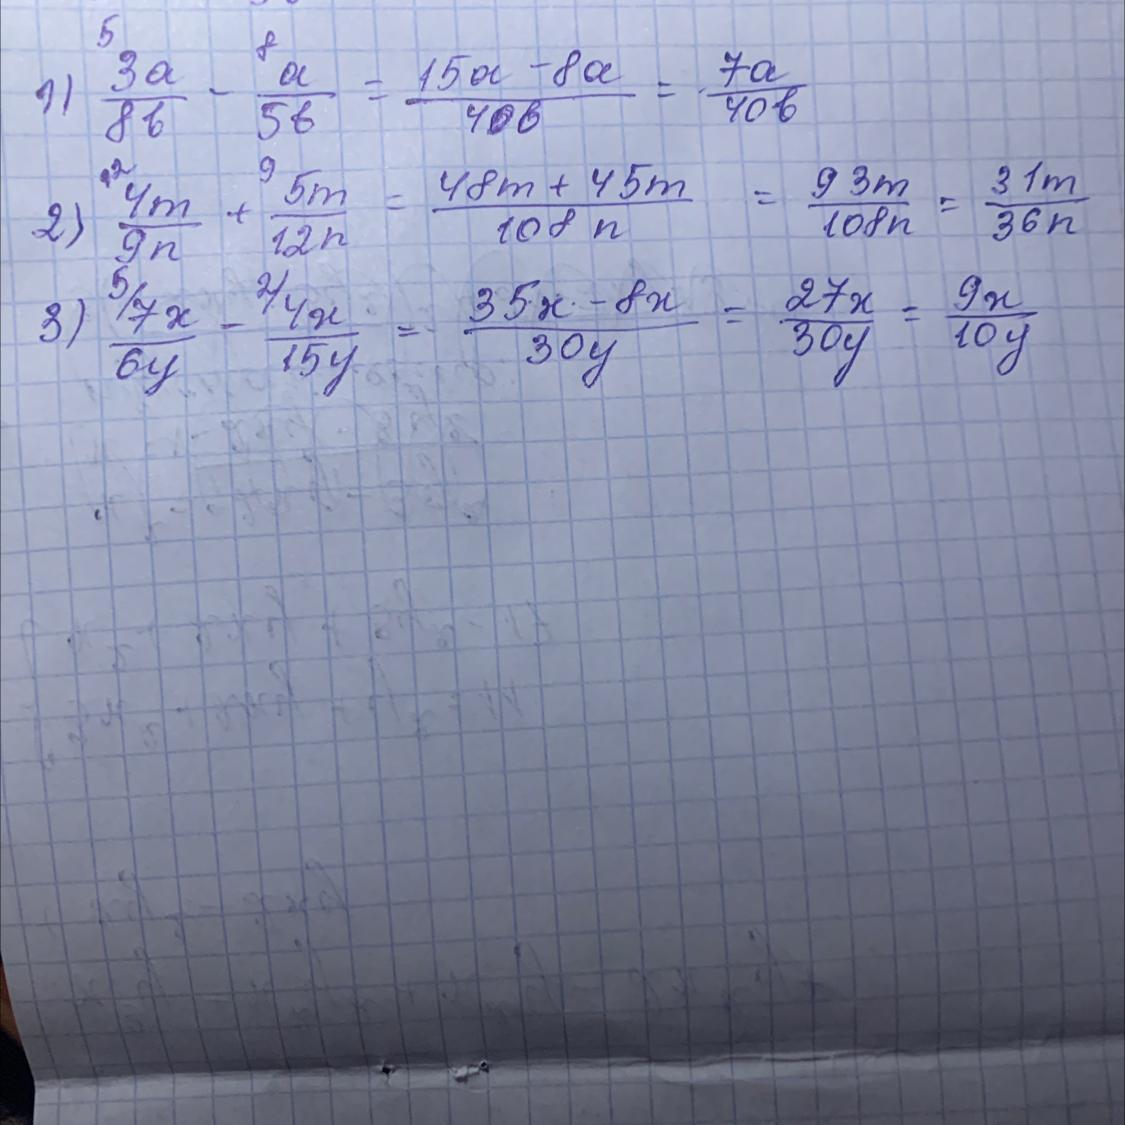 1) ⁵ 3a/8b - ⁸ a/5b = (15a - 8a)/40b = 7a/40b
2) ¹² 4m/9n + ⁹ 5m/12n = (48m + 45m)/108n = 93m/108n = 31m/36n
3) ⁵/ 7x/6y - ²/ 4x/15y = (35x - 8x)/30y = 27x/30y = 9x/10y